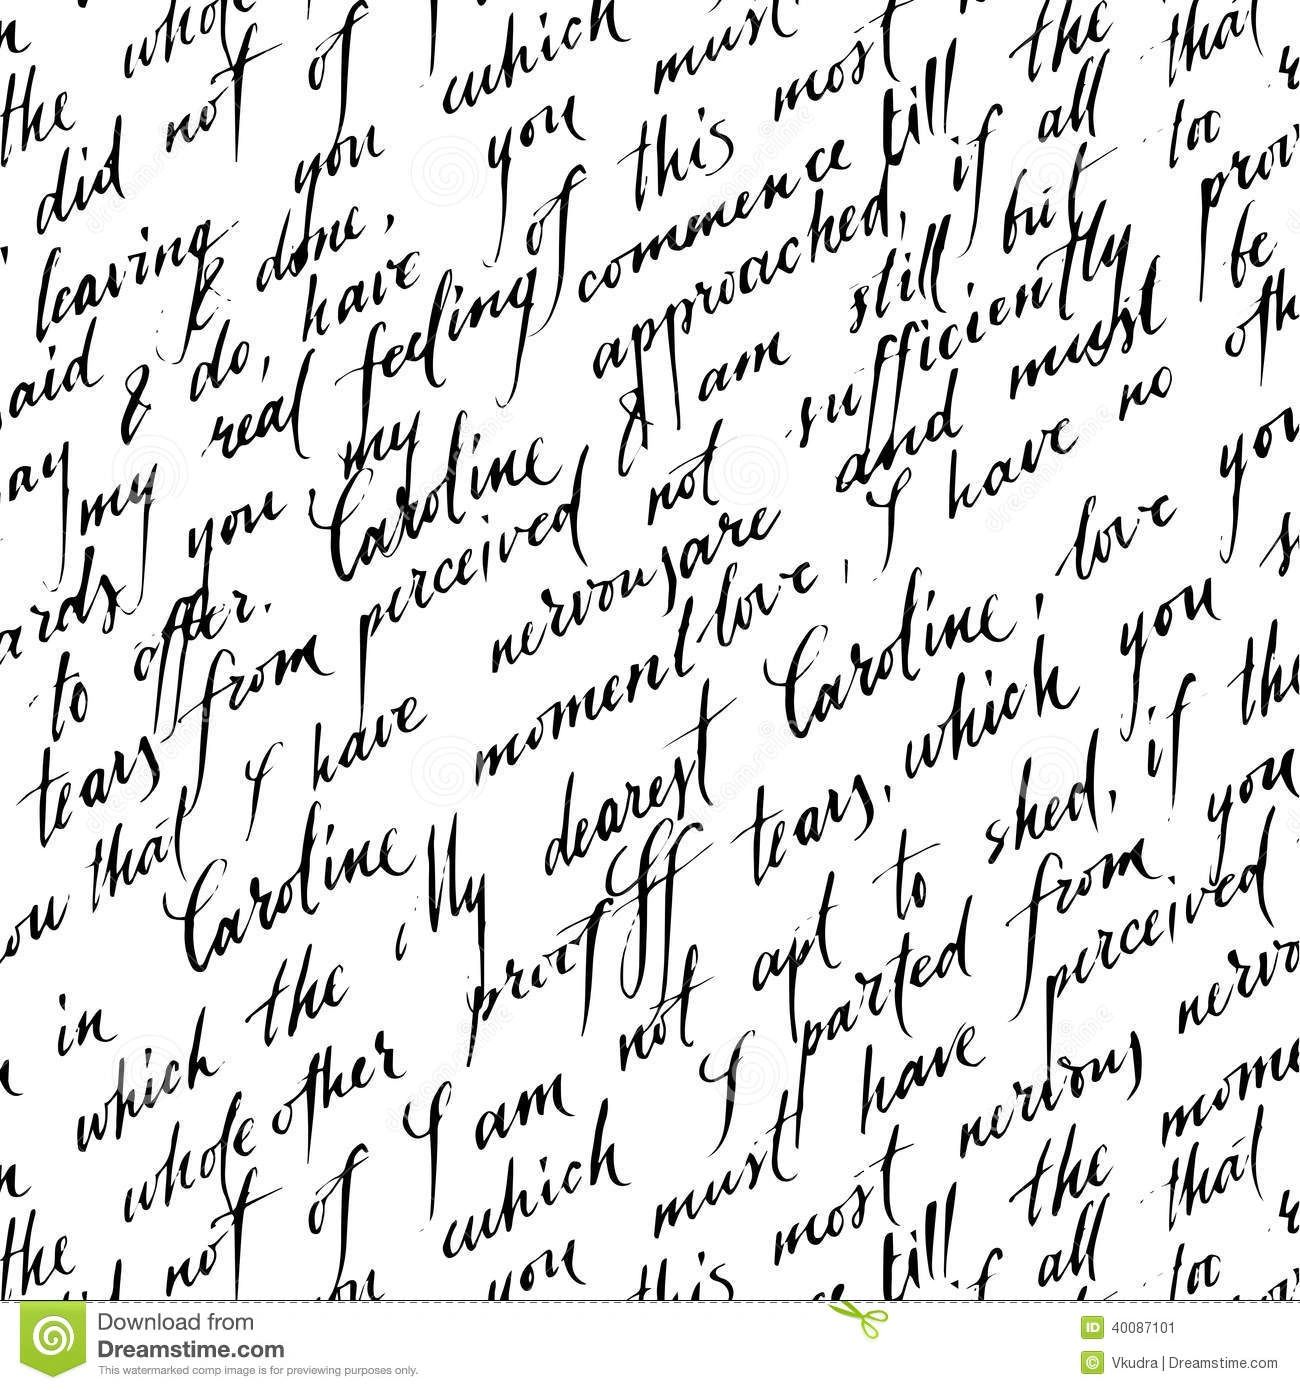 whole of which must
the did not you you this most the that
leaving done, of commence till if all too
said & do, have feeling approached, still but
say my real my & am sufficiently must be
you Caroline not and have no
to offer. perceived nervous are I love you
tears from I have moment love, Caroline,
that dearest tears, which you
Caroline My proof to shed, if the
in which the not apt parted from you
whole other I am I have perceived
the not of which must nervous
you this most the that
till if all too
Download from
Dreamstime.com
This watermarked comp image is for previewing purposes only.
ID 40087101
© Vkudra | Dreamstime.com